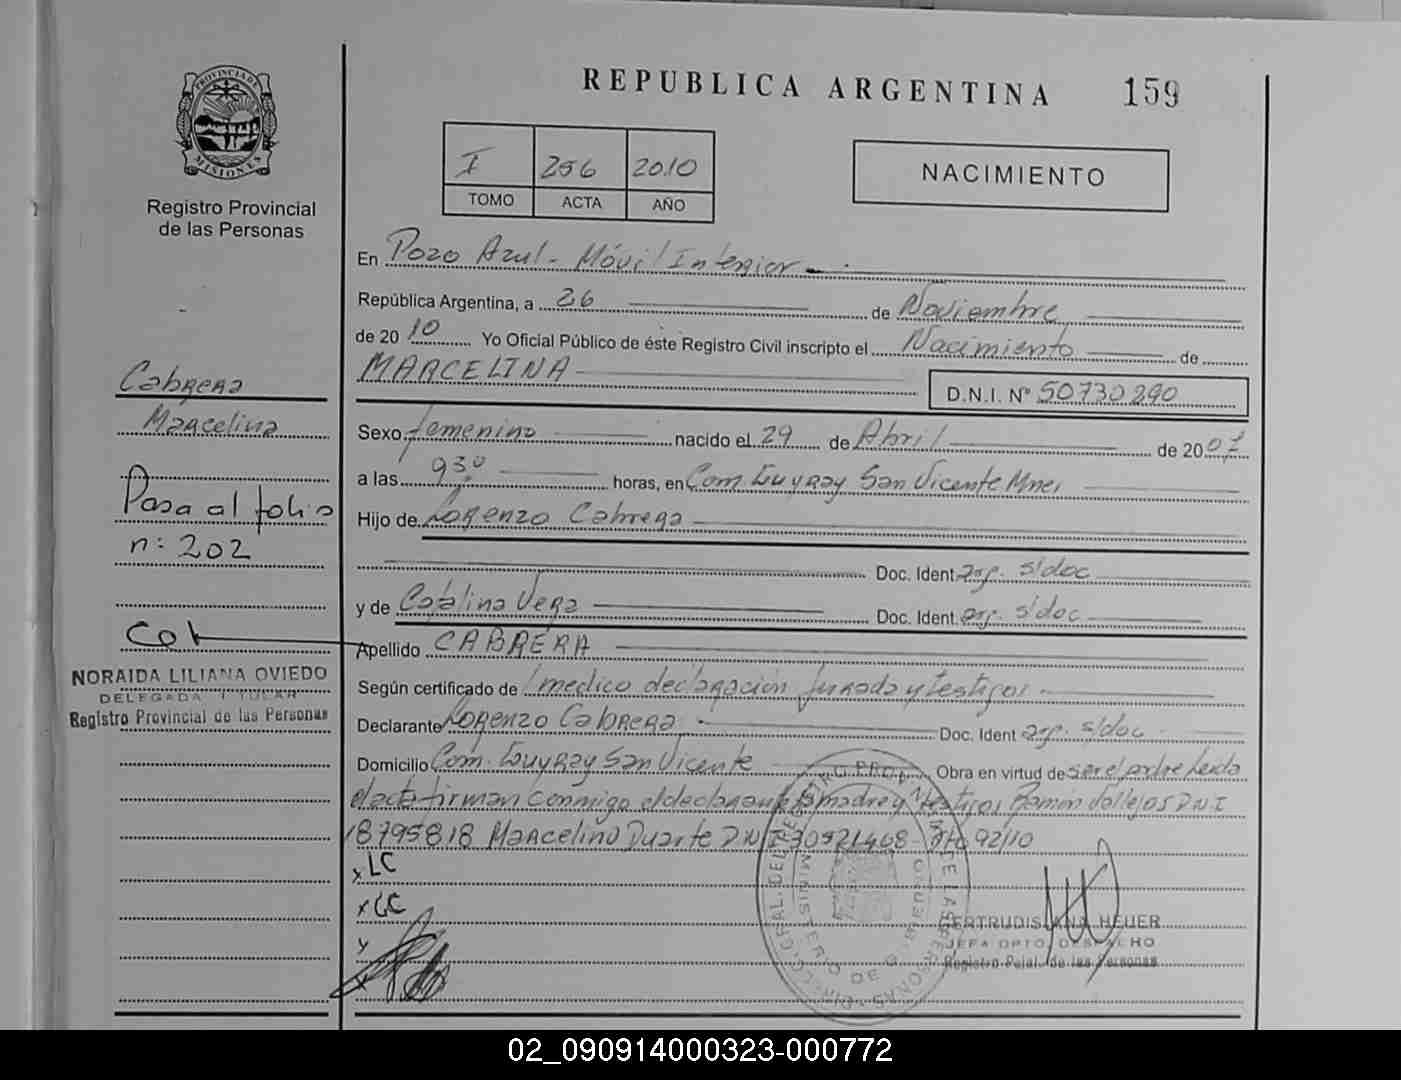 REPUBLICA ARGENTINA 159
PROVINCIA DE
MISIONES
Registro Provincial
de las Personas
I 256 2010
TOMO ACTA AÑO
NACIMIENTO
En Pozo Azul - Móvil Interior
República Argentina, a 26 de Noviembre
de 20 10 Yo Oficial Público de éste Registro Civil inscripto el Nacimiento de
MARCELINA D.N.I. Nº 50730290
Sexo femenino nacido el 29 de Abril de 20 07
a las 930 horas, en Com. Guyray San Vicente Mnes
Hijo de Lorenzo Cabrera
Doc. Ident arg. s/doc
y de Catalina Vera Doc. Ident. arg. s/doc
Apellido CABRERA
Según certificado de medico declaración jurada y testigos
Declarante Lorenzo Cabrera Doc. Ident arg. s/doc
Domicilio Com. Guyray San Vicente Obra en virtud de ser el padre Leida
el acta firman conmigo el declarante la madre y testigos Ramón Vallejos DNI
18795818 Marcelino Duarte DNI 30521408 92/10
x LC
x GC
Cabrera
Marcelina
Pasa al folio
n: 202
NORAIDA LILIANA OVIEDO
DELEGADA TITULAR
Registro Provincial de las Personas
GERTRUDIS ANA HEUER
JEFA DPTO. DESPACHO
Registro Pcial. de las Personas
02_090914000323-000772